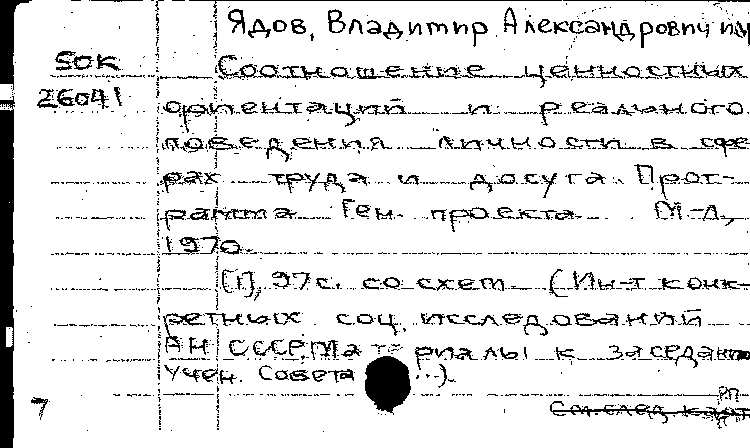 Ядов, Владимир Александрович и др
SOK
Соотношение ценностных
26041
ориентаций и реального
поведения личности в сфе
рах труда и досуга. Прог-
рамма Ген. проекта. М-Л,
1970.
[1], 97с. со схем. (Ин-т конк-
ретных соц. исследований
АН СССР. Материалы к заседанию
Учен. Совета ...).
7
См. след. карт